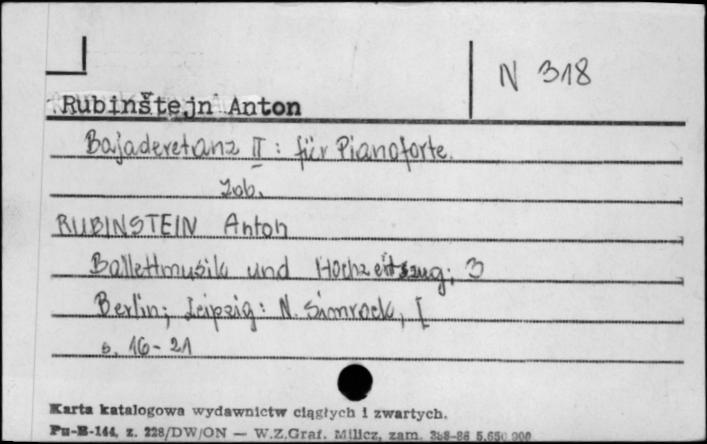 N 318
Rubinštejn Anton
Bajaderetanz II : für Pianoforte.
Zob.
RUBINSTEIN Anton
Ballettmusik und Hochzeitszug; 3
Berlin; Leipzig: N. Simrock, [
s. 16-21
Karta katalogowa wydawnictw ciągłych i zwartych.
Pu-B-144, z. 228/DW/ON — W.Z.Graf. Milicz, zam. 388-86 5.650 000